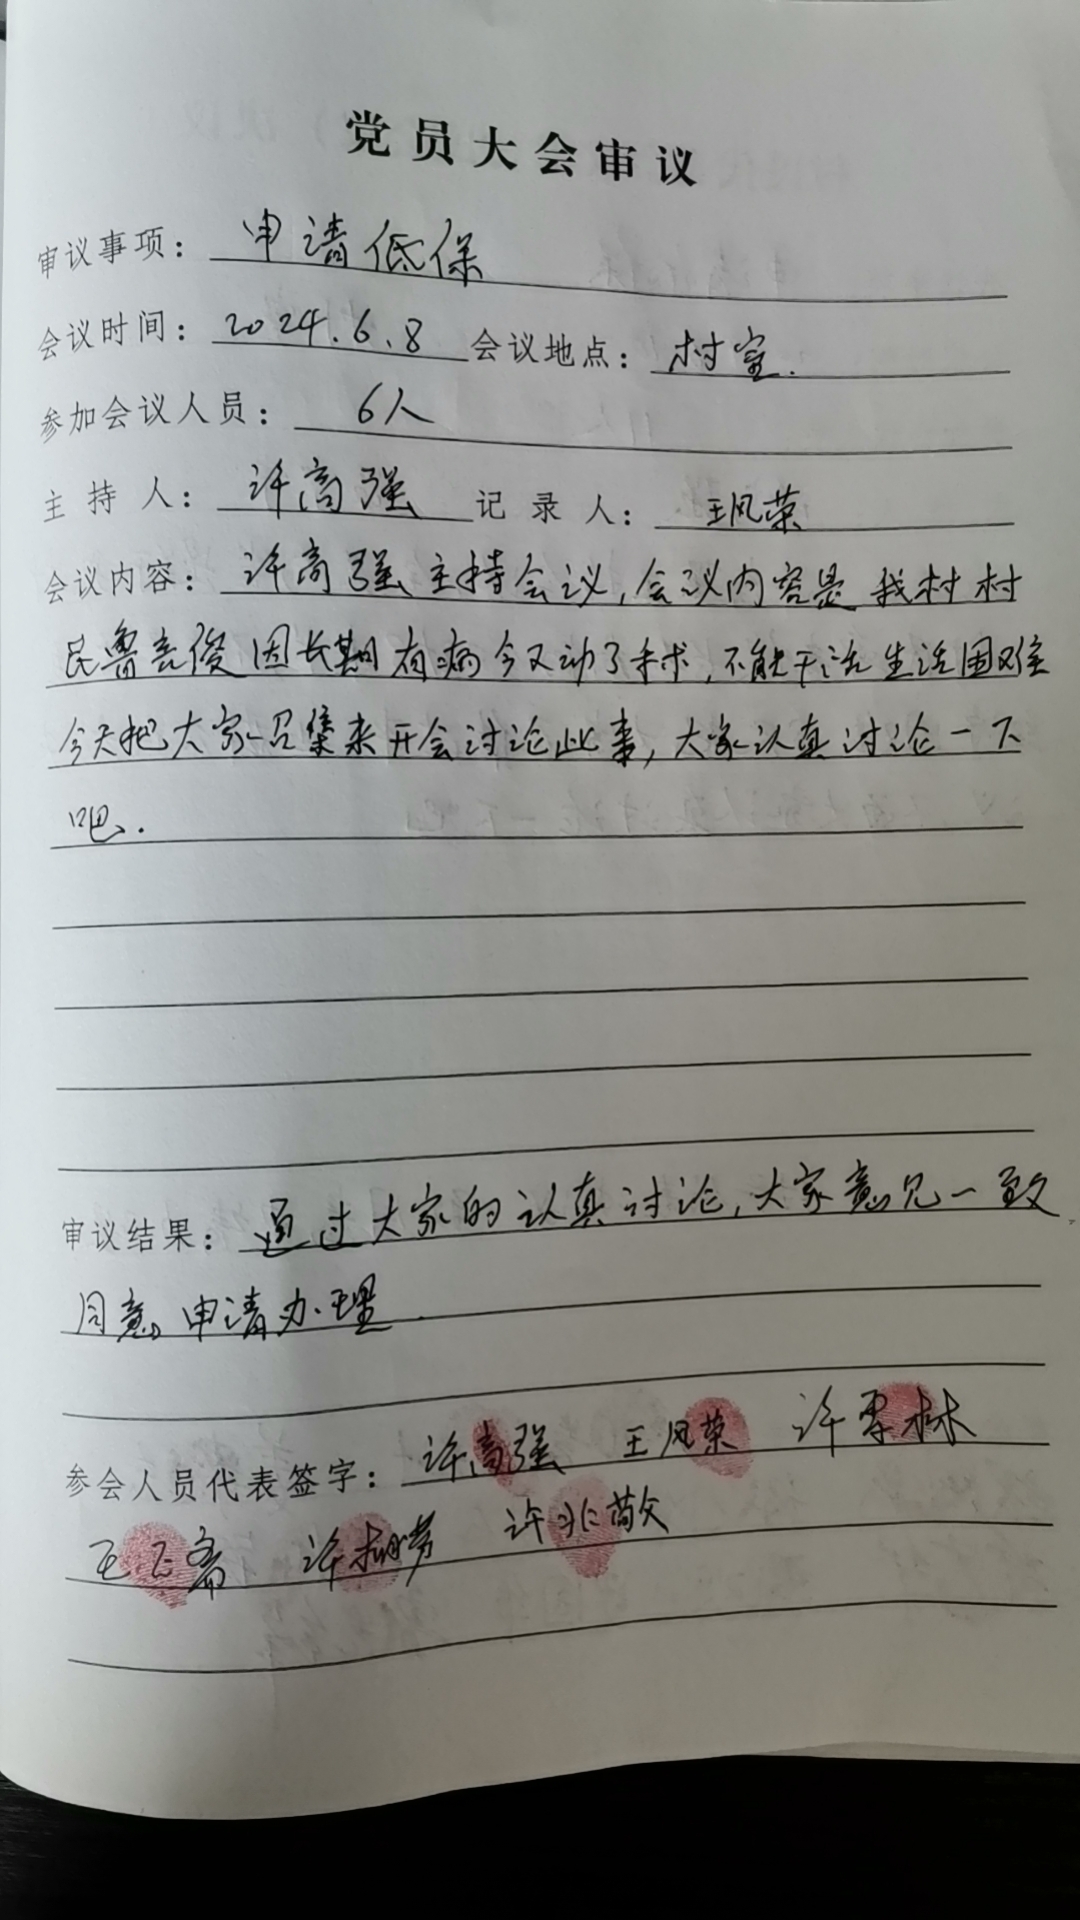 党员大会审议
审议事项：申请低保
会议时间：2024.6.8 会议地点：村室.
参加会议人员：6人
主持人：许高强 记录人：王凤荣
会议内容：许高强主持会议,会议内容是我村村
民鲁亮俊因长期有病今又动了手术,不能干活生活困难
今天把大家召集来开会讨论此事,大家认真讨论一下
吧.
审议结果：通过大家的认真讨论,大家意见一致
同意申请办理.
参会人员代表签字：许高强 王凤荣 许 林
王 许 许